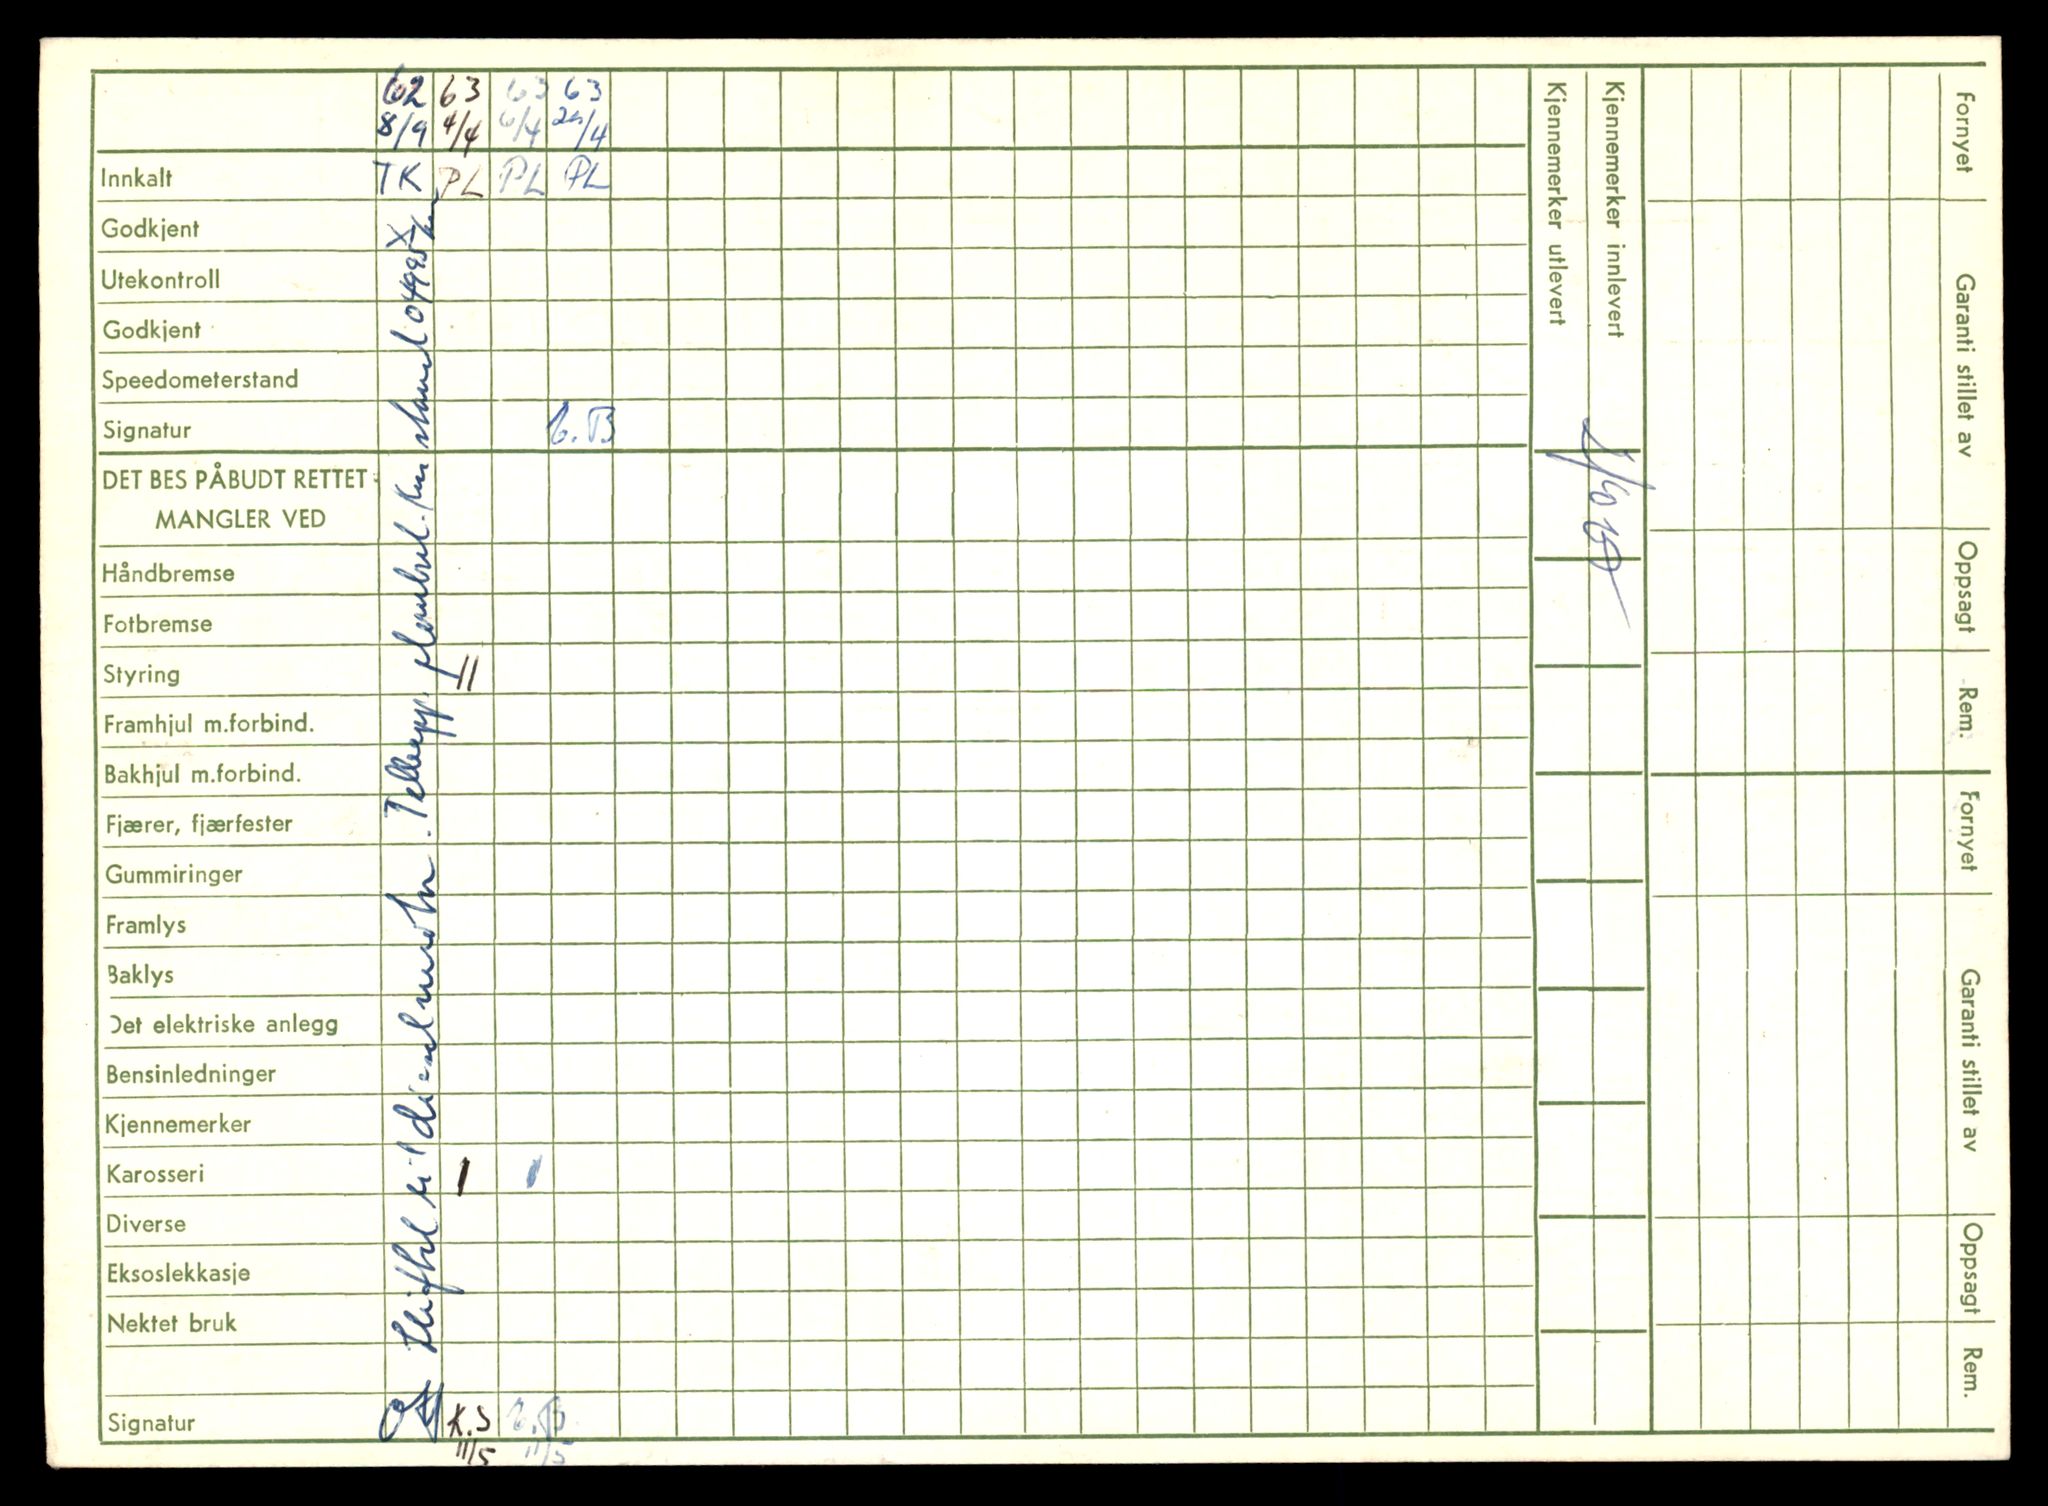 62 63 63 63
8/9 4/4 6/4 25/4
Innkalt TK PL PL PL
Godkjent X
Utekontroll
Godkjent
Speedometerstand
Signatur E.B
DET BES PÅBUDT RETTET
MANGLER VED
Håndbremse
Fotbremse
Styring II
Framhjul m.forbind.
Bakhjul m.forbind.
Fjærer, fjærfester
Gummiringer
Framlys
Baklys
Det elektriske anlegg
Bensinledninger
Kjennemerker
Karosseri I I
Diverse
Eksoslekkasje
Nektet bruk
Signatur K.S E.B
11/5 11/5
Skiftet til dieselmotor. Telleapp. plombert. Km stand 04985 km
Kjennemerker utlevert
Kjennemerker innlevert
Fornyet
Garanti stillet av
Oppsagt
Rem.
Fornyet
Garanti stillet av
Oppsagt
Rem.